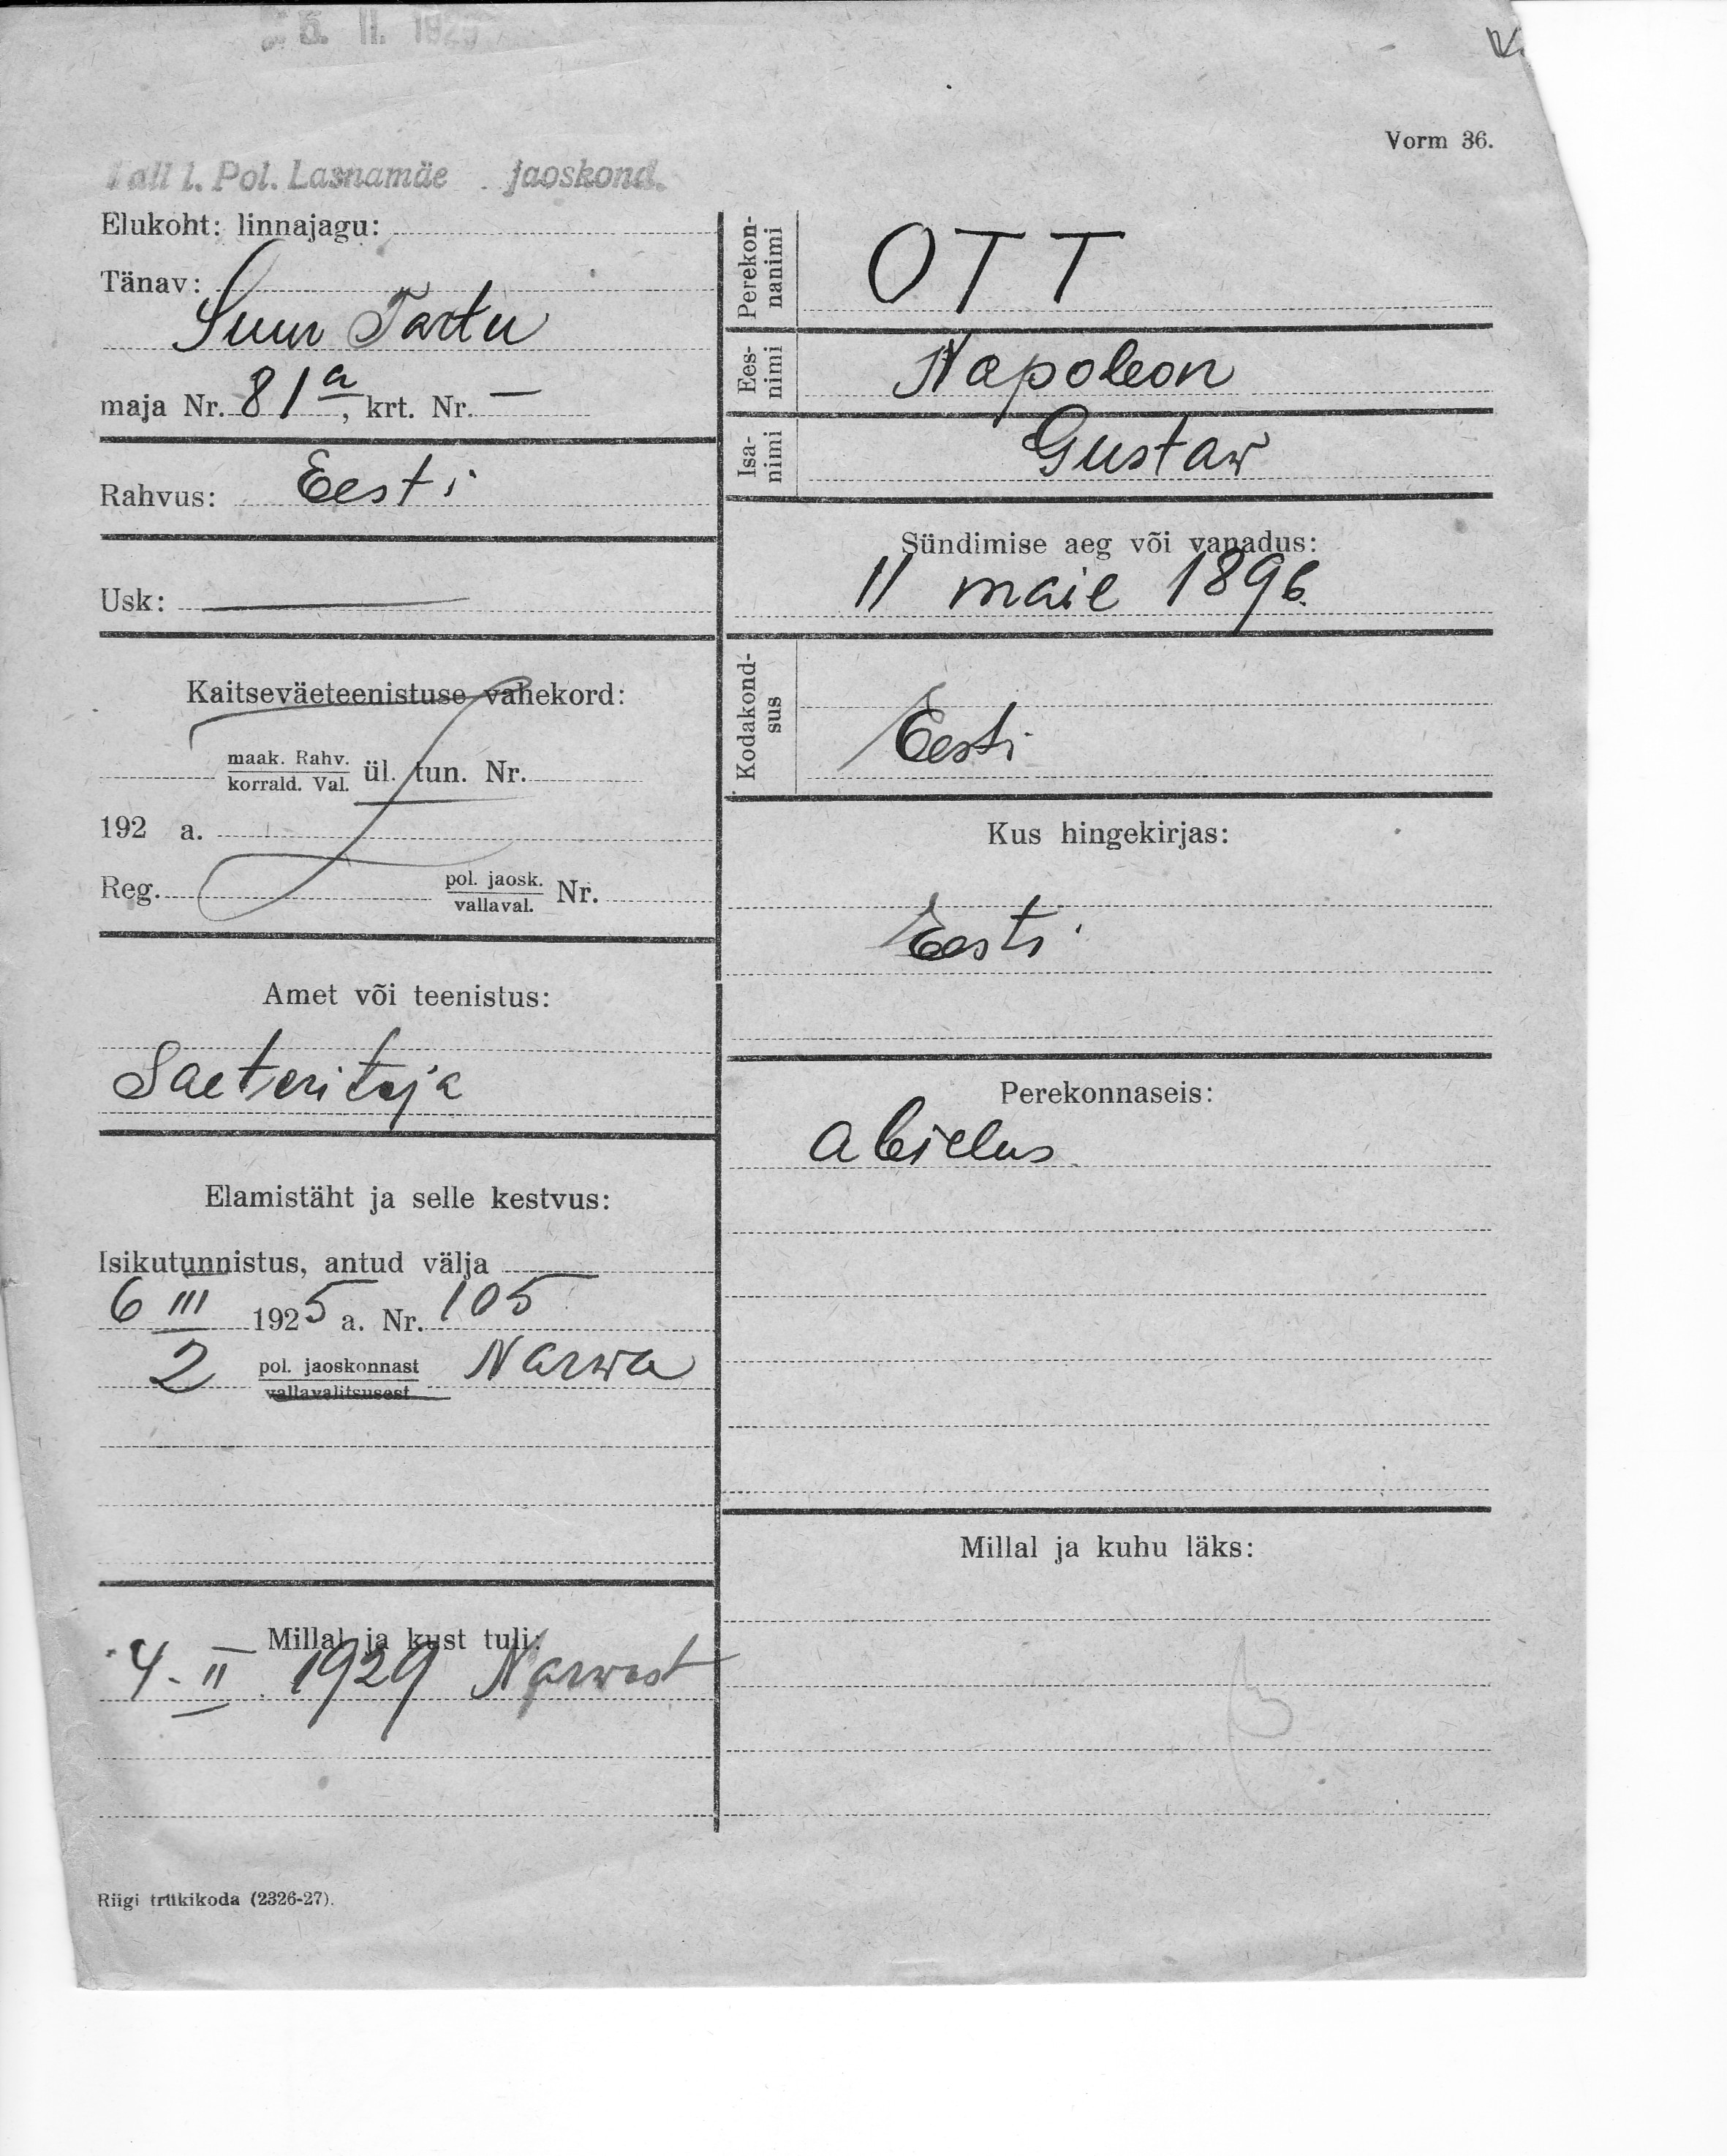 5. II. 1929
Vorm 36.
Tall l. Pol. Lasnamäe jaoskond.
Elukoht: linnajagu:
Tänav:
Suur Tartu
maja Nr. 81a, krt. Nr. —
Rahvus: Eesti
Usk: —
Kaitseväeteenistuse vahekord:
maak. Rahv.
korrald. Val. ül. tun. Nr.
192 a.
Reg. pol. jaosk.
vallaval. Nr.
Amet või teenistus:
Saeteritaja
Elamistäht ja selle kestvus:
Isikutunnistus, antud välja
6 III 1925 a. Nr. 105
2 pol. jaoskonnast Narwa
vallavalitsusest
Millal ja kust tuli:
4. II. 1929 Narwast
Riigi trükikoda (2326-27).
Perekon-
nanimi
OTT
Ees-
nimi
Napoleon
Isa-
nimi
Gustaw
Sündimise aeg või vanadus:
11 mail 1896.
Kodakond-
sus
Eesti
Kus hingekirjas:
Eesti
Perekonnaseis:
abielus
Millal ja kuhu läks: